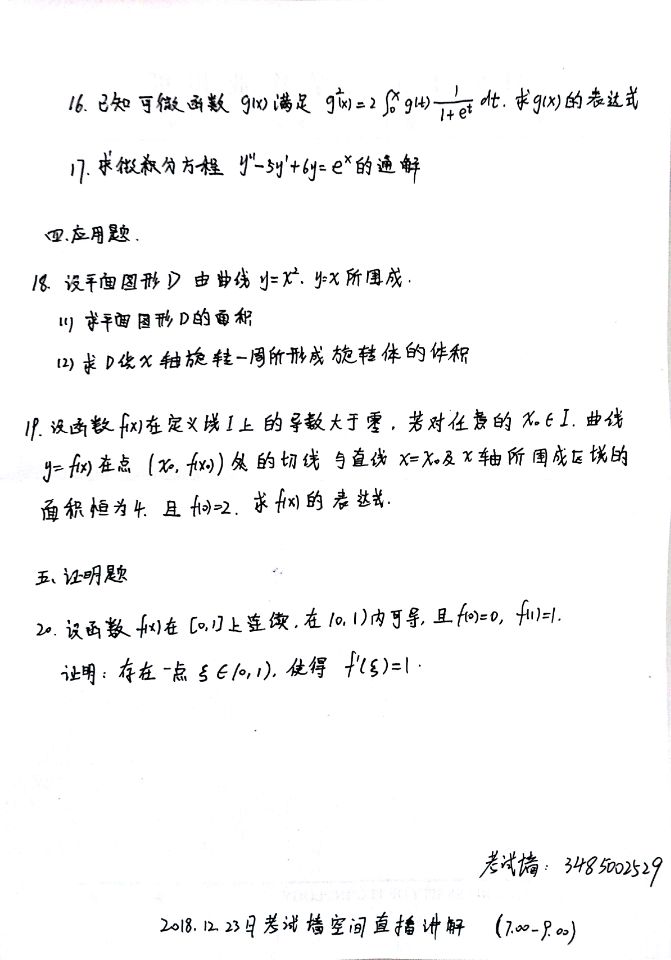 16. 已知可微函数 g(x) 满足 g²(x)=2∫₀ˣ g(t) 1/(1+eᵗ) dt. 求g(x)的表达式
17. 求微积分方程 y''-5y'+6y=eˣ的通解
四.应用题.
18. 设平面图形D 由曲线 y=x². y=x 所围成.
(1) 求平面图形D的面积
(2) 求 D绕x 轴旋转一周所形成旋转体的体积
19. 设函数 f(x)在定义域 I 上的导数大于零, 若对任意的 x₀∈I. 曲线
y=f(x)在点 (x₀, f(x₀)) 处的切线与直线 x=x₀及x轴所围成区域的
面积恒为4. 且 f(0)=2. 求f(x)的表达式.
五、证明题
20. 设函数 f(x)在 [0,1]上连续, 在(0,1)内可导, 且f(0)=0, f(1)=1.
证明: 存在一点 ξ∈(0,1), 使得 f'(ξ)=1.
考试墙: 3485002529
2018.12.23日考试墙空间直播讲解 (7.00-9.00)